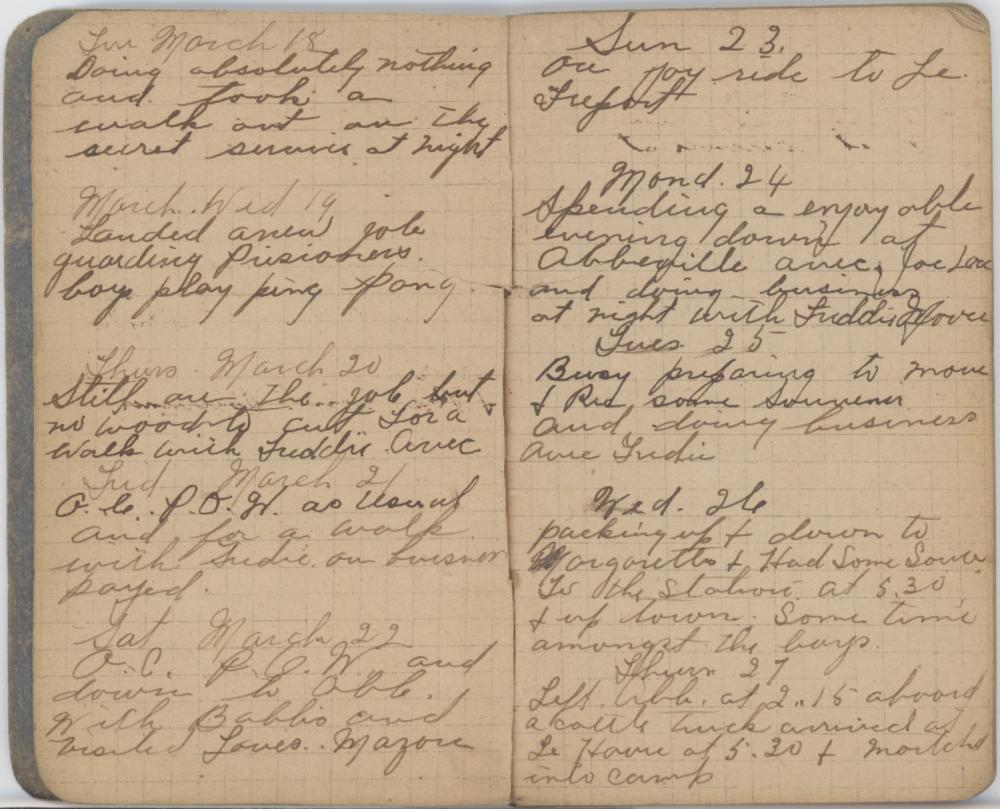 Tue March 18
Doing absolutely nothing
and took a
walk out on the
secret service at night
March. Wed 19
Landed a new job
guarding Prisioners.
boys play ping Pong
Thurs March 20
Still on the job but
no wood to cut for a
walk with Freddie avec
Frid March 21
O. C. P.O.W. as usual
and for a walk
with Fredie on buisness
payed.
Sat March 22
O.C. P.O.W and
down to Abb.
with Babbis and
visited Loves.
Sun 23.
On joy ride to Le
Treport
Mond. 24
Spending a enjoyable
evening down at
Abbeville avec Joe
and doing business
at night with Freddie
Tues 25
Busy prefaring to move
& some souvener
and doing business
avec Fredie
Wed. 26
packing up & down to
Margarettes & Had Some
To the Station at 5.30
& up town. Some time
amongst the boys.
Thurs 27
Left Abb. at 2.15 aboard
a cattle truck arrived at
Le Havre at 5.30 & marched
into camp